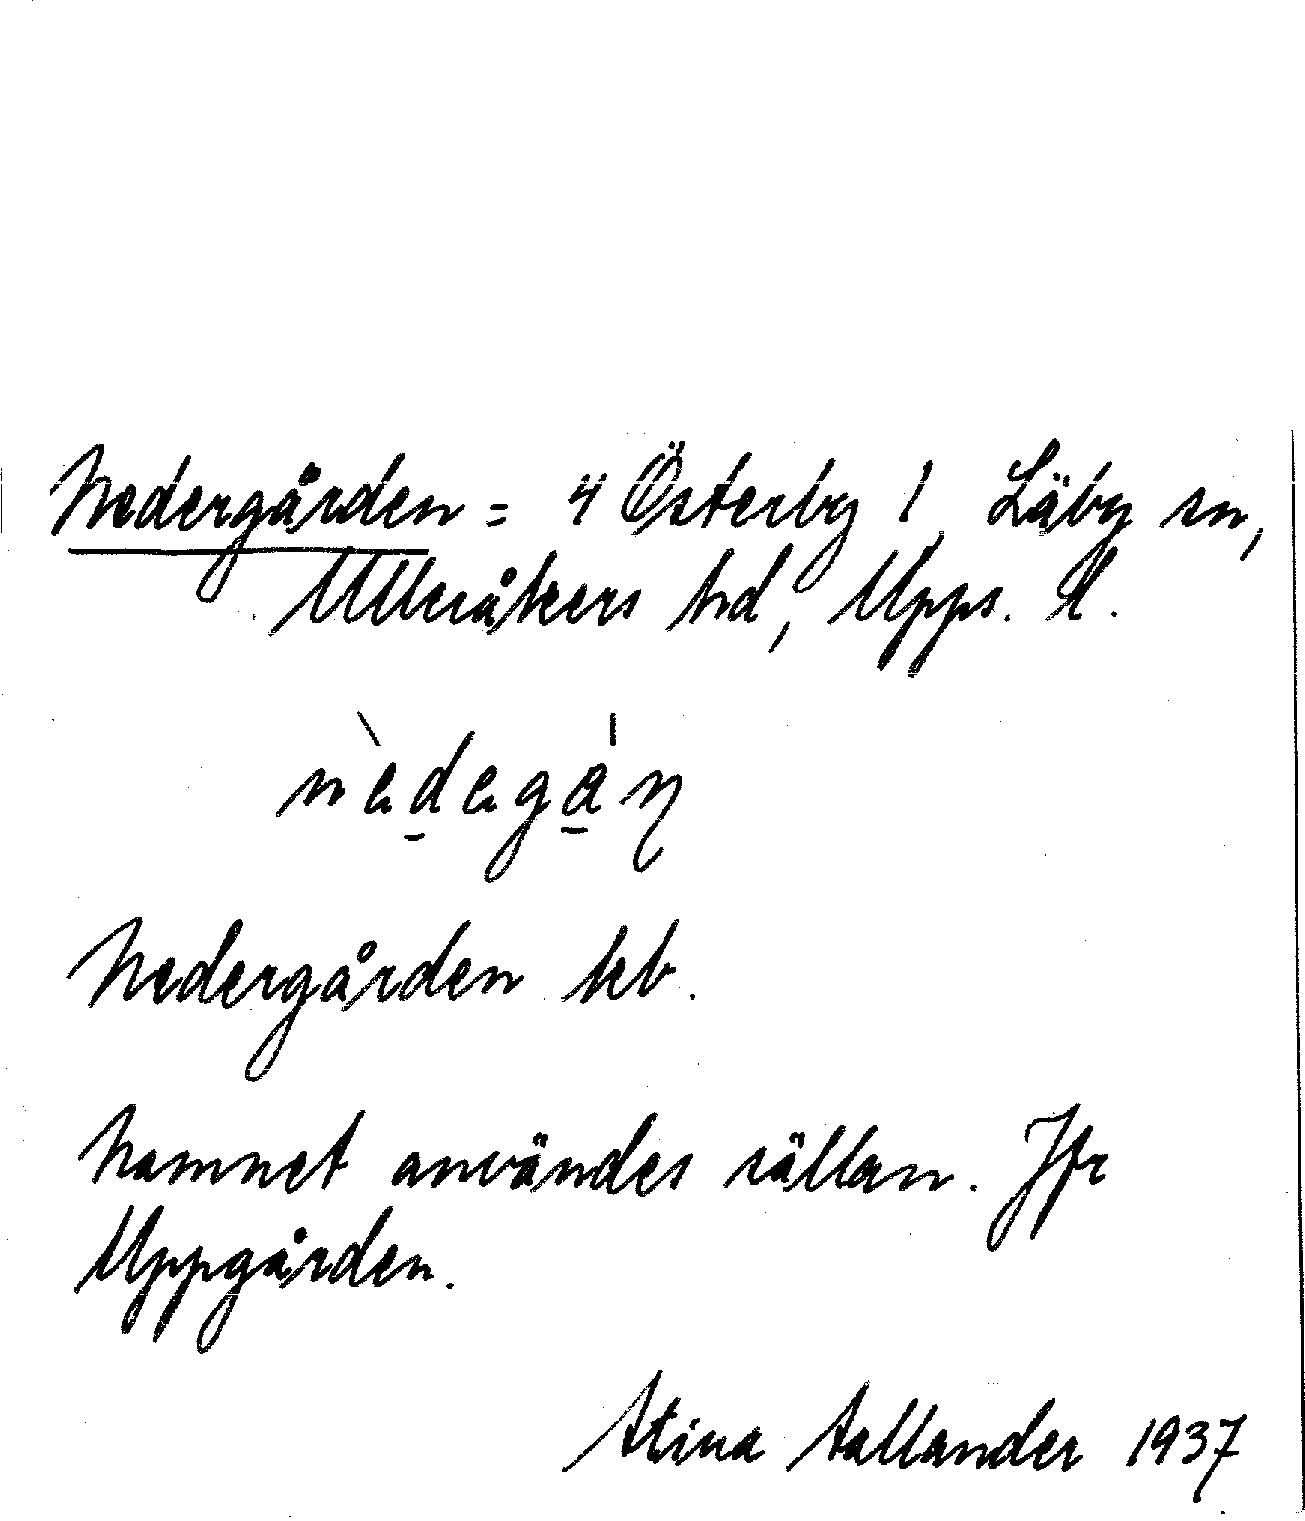 Nedergården = 4 Österby 1, Läby sn,
Ulleråkers hd, Upps. l.
nèdegán
Nedergården kb.
Namnet användes sällan. Jfr
Uppgården.
Stina Sallander 1937